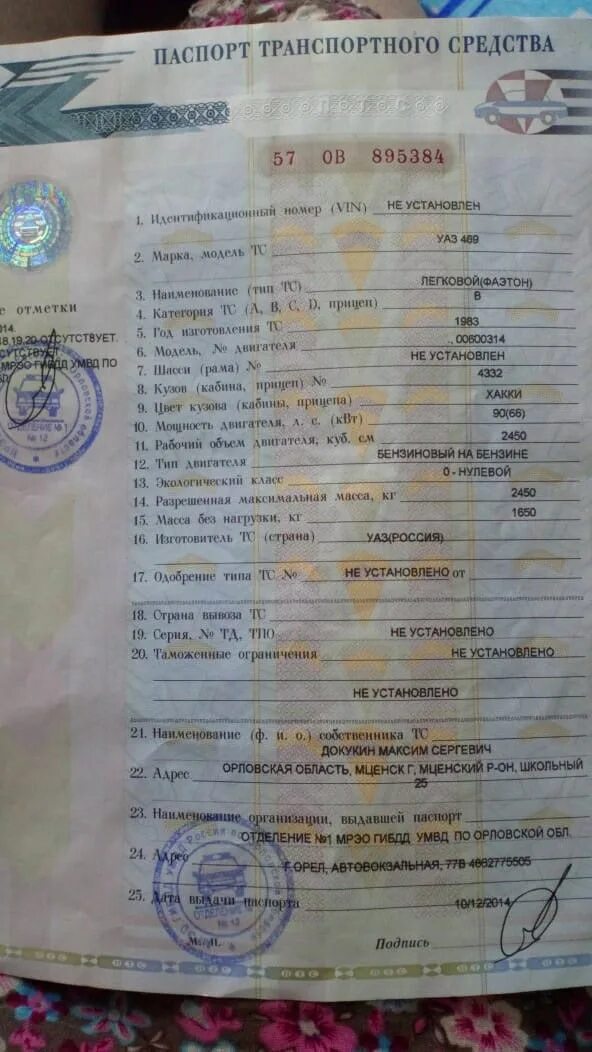 ПАСПОРТ ТРАНСПОРТНОГО СРЕДСТВА
57 ОВ 895384
1. Идентификационный номер (VIN) НЕ УСТАНОВЛЕН
2. Марка, модель ТС УАЗ 469
3. Наименование (тип ТС) ЛЕГКОВОЙ(ФАЭТОН)
4. Категория ТС (A, B, C, D, прицеп) B
5. Год изготовления ТС 1983
6. Модель, № двигателя , 00600314
7. Шасси (рама) № НЕ УСТАНОВЛЕН
8. Кузов (кабина, прицеп) № 4332
9. Цвет кузова (кабины, прицепа) ХАККИ
10. Мощность двигателя, л. с. (кВт) 90(66)
11. Рабочий объем двигателя, куб. см 2450
12. Тип двигателя БЕНЗИНОВЫЙ НА БЕНЗИНЕ
13. Экологический класс 0 - НУЛЕВОЙ
14. Разрешенная максимальная масса, кг 2450
15. Масса без нагрузки, кг 1650
16. Изготовитель ТС (страна) УАЗ(РОССИЯ)
17. Одобрение типа ТС № НЕ УСТАНОВЛЕНО от
18. Страна вывоза ТС
19. Серия, № ТД, ТПО НЕ УСТАНОВЛЕНО
20. Таможенные ограничения НЕ УСТАНОВЛЕНО
НЕ УСТАНОВЛЕНО
21. Наименование (ф. и. о.) собственника ТС
ДОКУКИН МАКСИМ СЕРГЕВИЧ
22. Адрес ОРЛОВСКАЯ ОБЛАСТЬ, МЦЕНСК Г, МЦЕНСКИЙ Р-ОН, ШКОЛЬНЫЙ
25
23. Наименование организации, выдавшей паспорт
ОТДЕЛЕНИЕ №1 МРЭО ГИБДД УМВД ПО ОРЛОВСКОЙ ОБЛ.
24. Адрес Г.ОРЕЛ, АВТОВОКЗАЛЬНАЯ, 77В 4862775505
25. Дата выдачи паспорта 10/12/2014
М. п. Подпись
е отметки
014.
18,19,20-ОТСУТСТВУЕТ.
МРЭО ГИБДД УМВД ПО
ОТДЕЛЕНИЕ № 1
№ 12